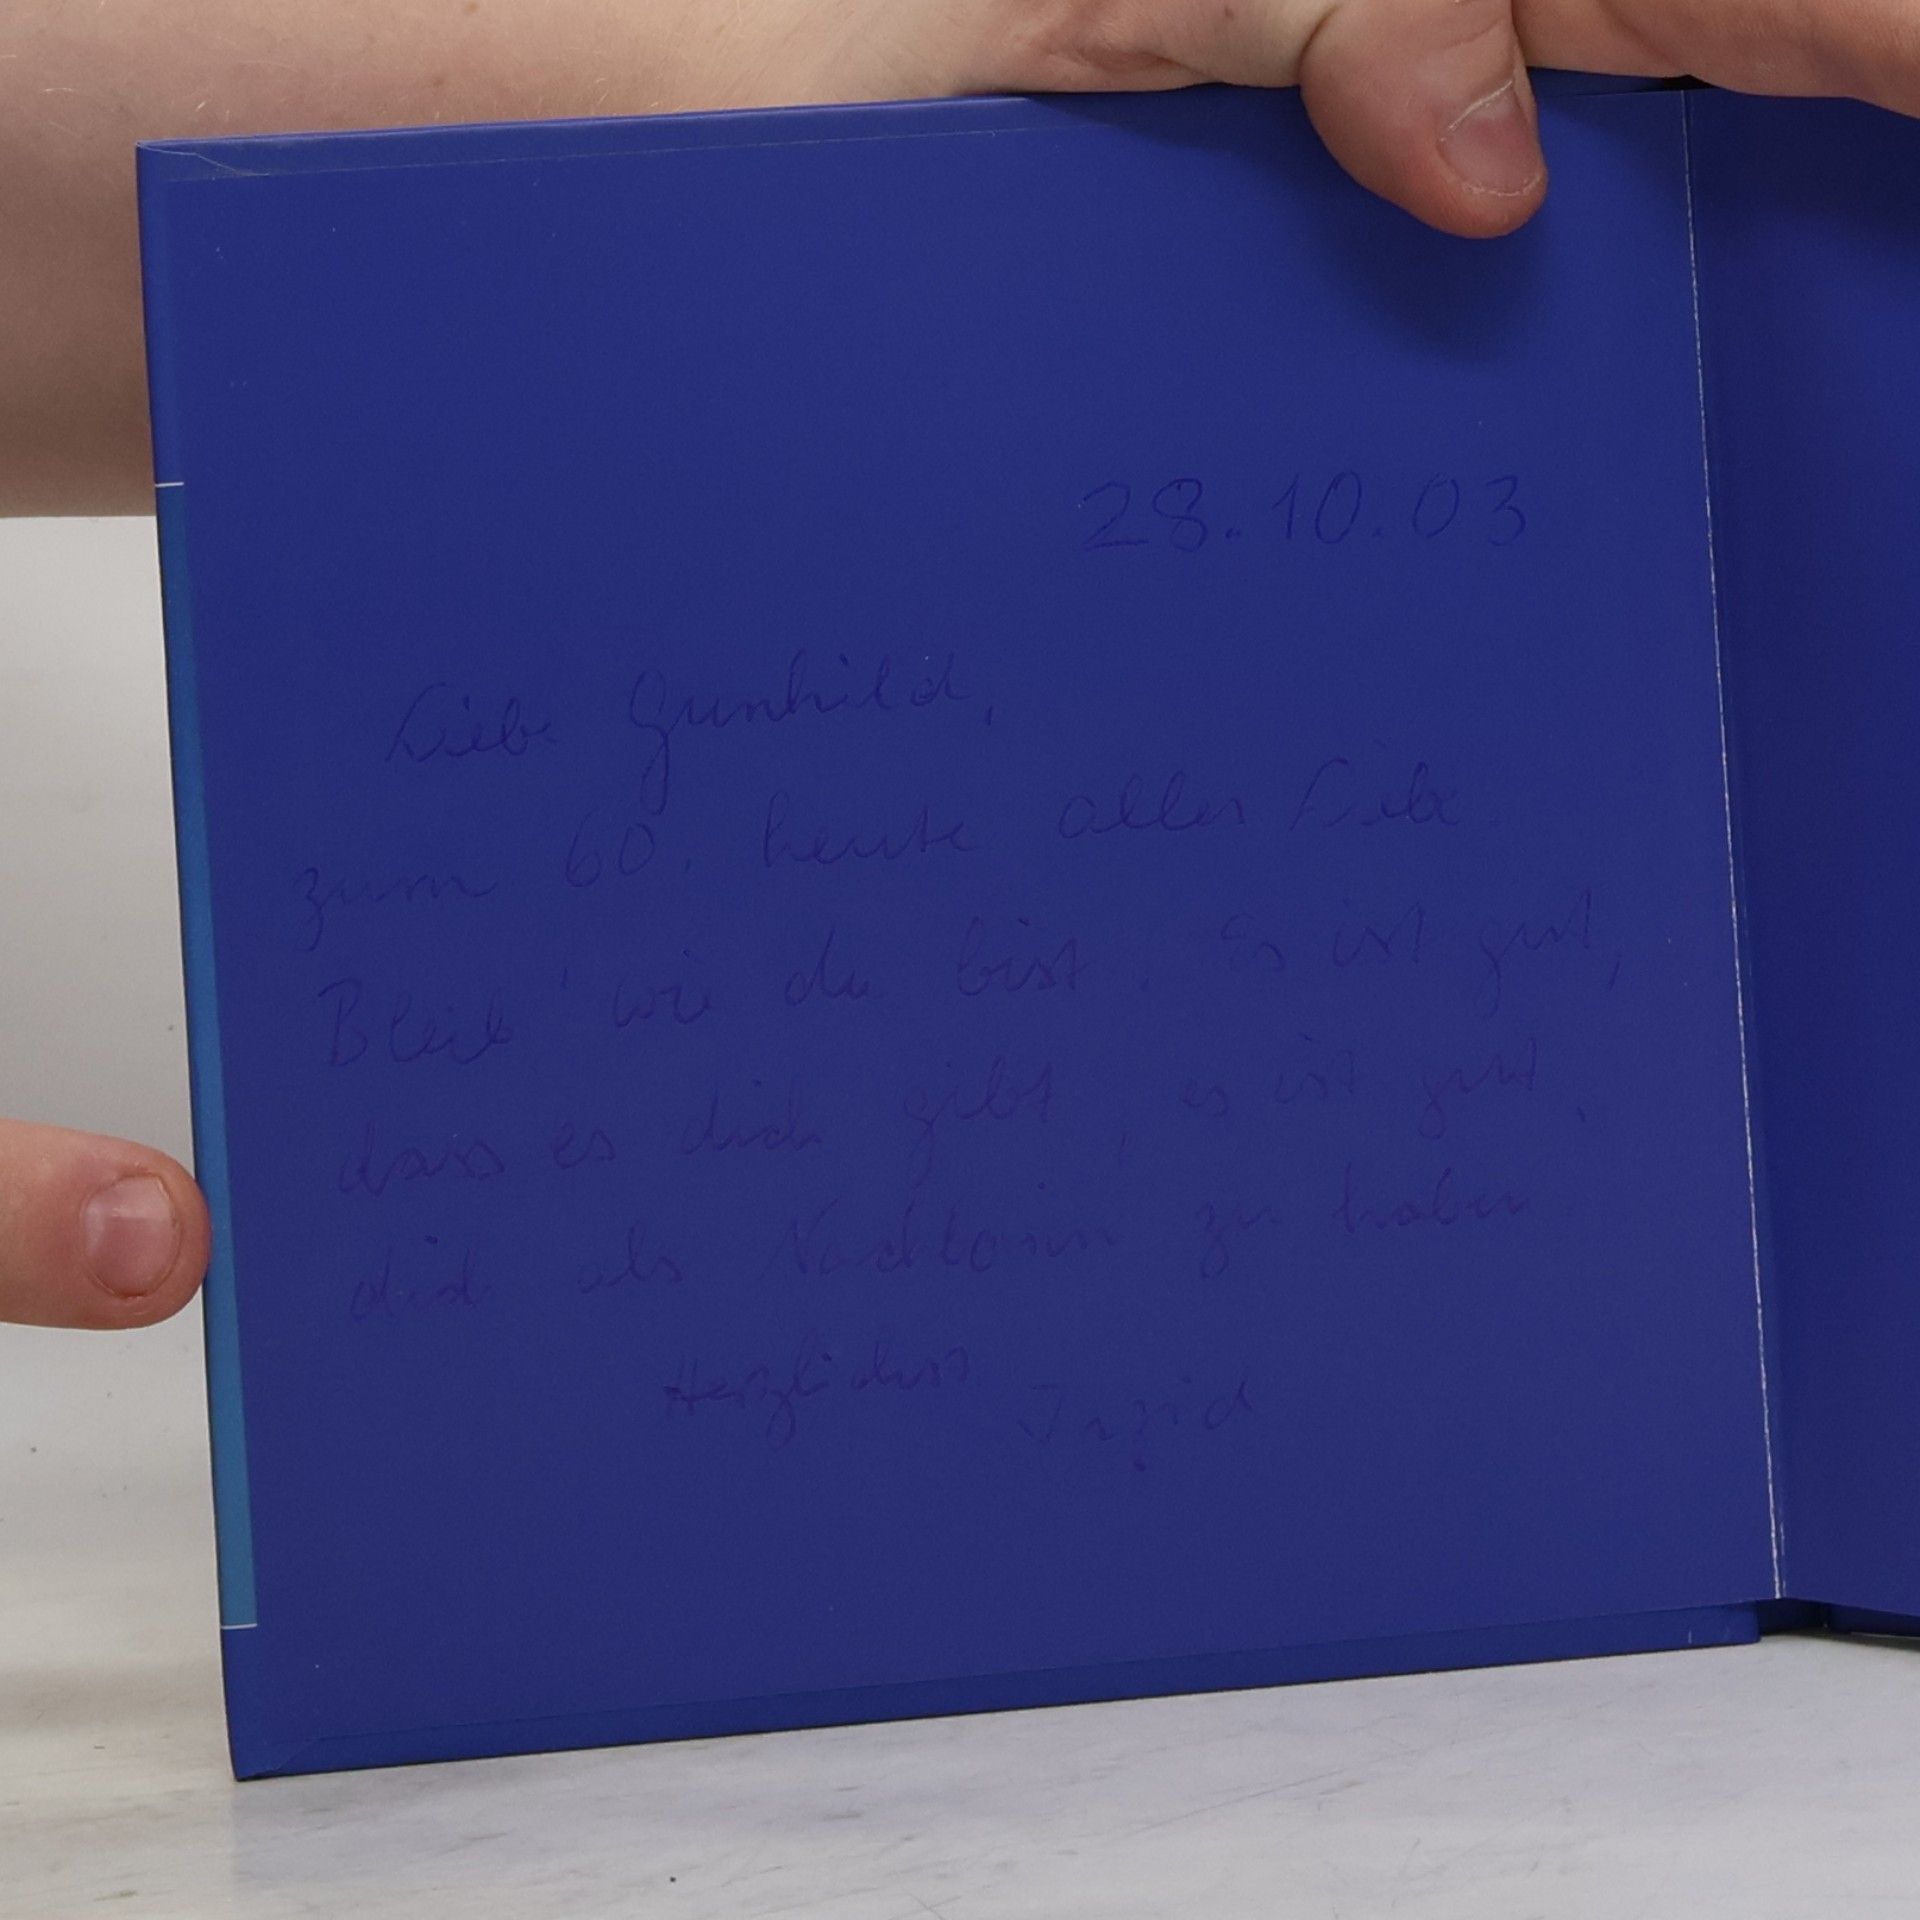 28.10.03
Liebe Gunhild,
zum 60. heute alles Liebe.
Bleib' wie du bist. Es ist gut,
dass es dich gibt, es ist gut,
dich als Nachbarin zu haben
Herzlichst
Ingrid